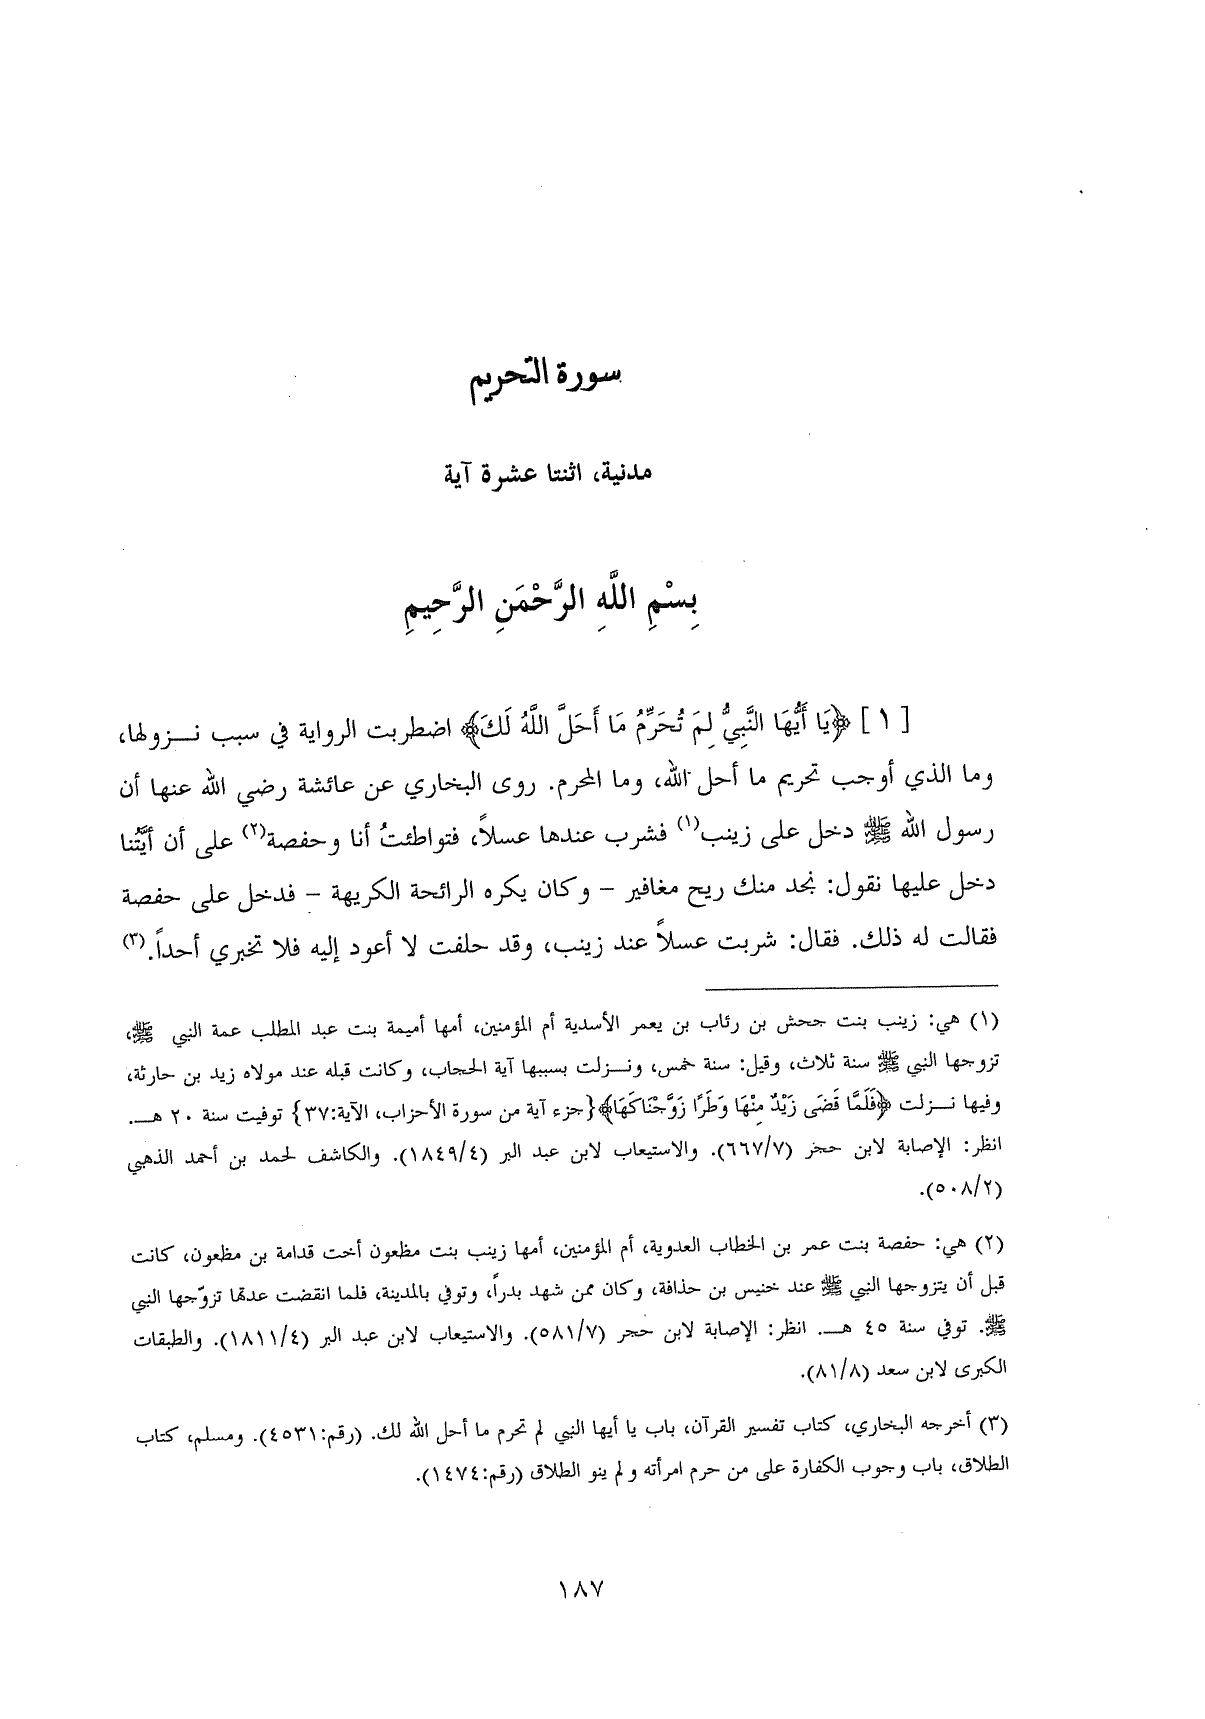 سورة التحريم
مدنية، اثنتا عشرة آية
بِسْمِ اللَّهِ الرَّحْمَنِ الرَّحِيمِ
[١] ﴿يَا أَيُّهَا النَّبِيُّ لِمَ تُحَرِّمُ مَا أَحَلَّ اللَّهُ لَكَ﴾ اضطربت الرواية في سبب نـزولها،
وما الذي أوجب تحريم ما أحل الله، وما المحرم. روى البخاري عن عائشة رضي الله عنها أن
رسول الله ﷺ دخل على زينب(١) فشرب عندها عسلاً، فتواطئتُ أنا وحفصة(٢) على أن أيَّتُنا
دخل عليها نقول: نجد منك ريح مغافير – وكان يكره الرائحة الكريهة – فدخل على حفصة
فقالت له ذلك. فقال: شربت عسلاً عند زينب، وقد حلفت لا أعود إليه فلا تخبري أحداً.(٣)
(١) هي: زينب بنت جحش بن رئاب بن يعمر الأسدية أم المؤمنين، أمها أميمة بنت عبد المطلب عمة النبي ﷺ،
تزوجها النبي ﷺ سنة ثلاث، وقيل: سنة خمس، ونـزلت بسببها آية الحجاب، وكانت قبله عند مولاه زيد بن حارثة،
وفيها نـزلت ﴿فَلَمَّا قَضَى زَيْدٌ مِنْهَا وَطَرًا زَوَّجْنَاكَهَا﴾{جزء آية من سورة الأحزاب، الآية:٣٧} توفيت سنة ٢٠ هـ.
انظر: الإصابة لابن حجر (٦٦٧/٧). والاستيعاب لابن عبد البر (١٨٤٩/٤). والكاشف لحمد بن أحمد الذهبي
(٥٠٨/٢).
(٢) هي: حفصة بنت عمر بن الخطاب العدوية، أم المؤمنين، أمها زينب بنت مظعون أخت قدامة بن مظعون، كانت
قبل أن يتزوجها النبي ﷺ عند خنيس بن حذافة، وكان ممن شهد بدراً، وتوفي بالمدينة، فلما انقضت عدتها تزوّجها النبي
ﷺ. توفي سنة ٤٥ هـ. انظر: الإصابة لابن حجر (٥٨١/٧). والاستيعاب لابن عبد البر (١٨١١/٤). والطبقات
الكبرى لابن سعد (٨١/٨).
(٣) أخرجه البخاري، كتاب تفسير القرآن، باب يا أيها النبي لم تحرم ما أحل الله لك. (رقم:٤٥٣١). ومسلم، كتاب
الطلاق، باب وجوب الكفارة على من حرم امرأته ولم ينو الطلاق (رقم:١٤٧٤).
١٨٧